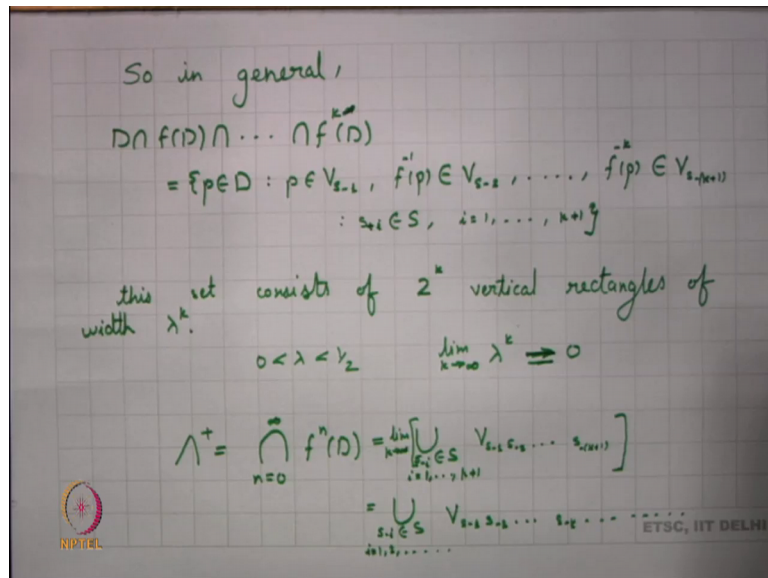 So in general,
D∩ f(D)∩ ··· ∩ f^k(D)
= {p∈D : p∈ V_{s-1}, f^{-1}(p) ∈ V_{s-2}, ....., f^{-k}(p) ∈ V_{s-(k+1)}
: s_{-i} ∈ S, i=1, ..., k+1}
this set consists of 2^k vertical rectangles of
width λ^k.
0 < λ < 1/2 lim_{k→∞} λ^k = 0
Λ^+ = ∩_{n=0}^∞ f^n(D) = lim_{k→∞} [ ∪_{s_{-i} ∈ S, i=1,..,k+1} V_{s-1 s-2 ... s-(k+1)} ]
= ∪_{s_{-i} ∈ S, i=1,2,.....} V_{s-1 s-2 ... s-k ... ......}
NPTEL
ETSC, IIT DELHI